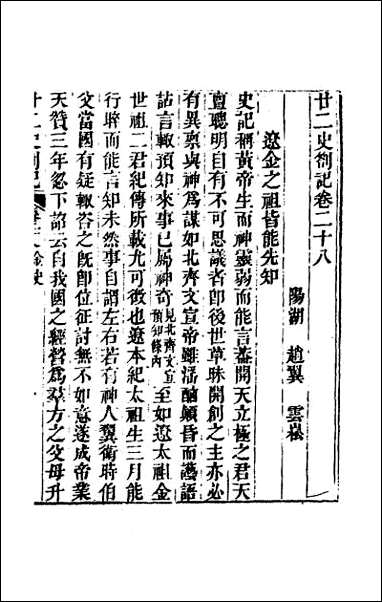 廿二史劄記卷二十八
陽湖 趙翼 雲崧
遼金之祖皆能先知
史記稱黃帝生而神靈弱而能言蓋開天立極之君天
亶聰明自有不可思議者卽後世草昧開創之主亦必
有異禀與神爲謀如北齊文宣帝雖湎酗顛昏而讖語
詁言輒預知來事已屬神奇見北齊文宣預知條內至如遼太祖金
世祖二君紀傳所載尤可徵也遼本紀太祖生三月能
行晬而能言知未然事自謂左右若有神人翼衛時伯
父當國有疑輒咨之旣卽位征討無不如意遂成帝業
天贊三年忽下詔云自我國之經營爲羣方之父母升
廿二史劄記